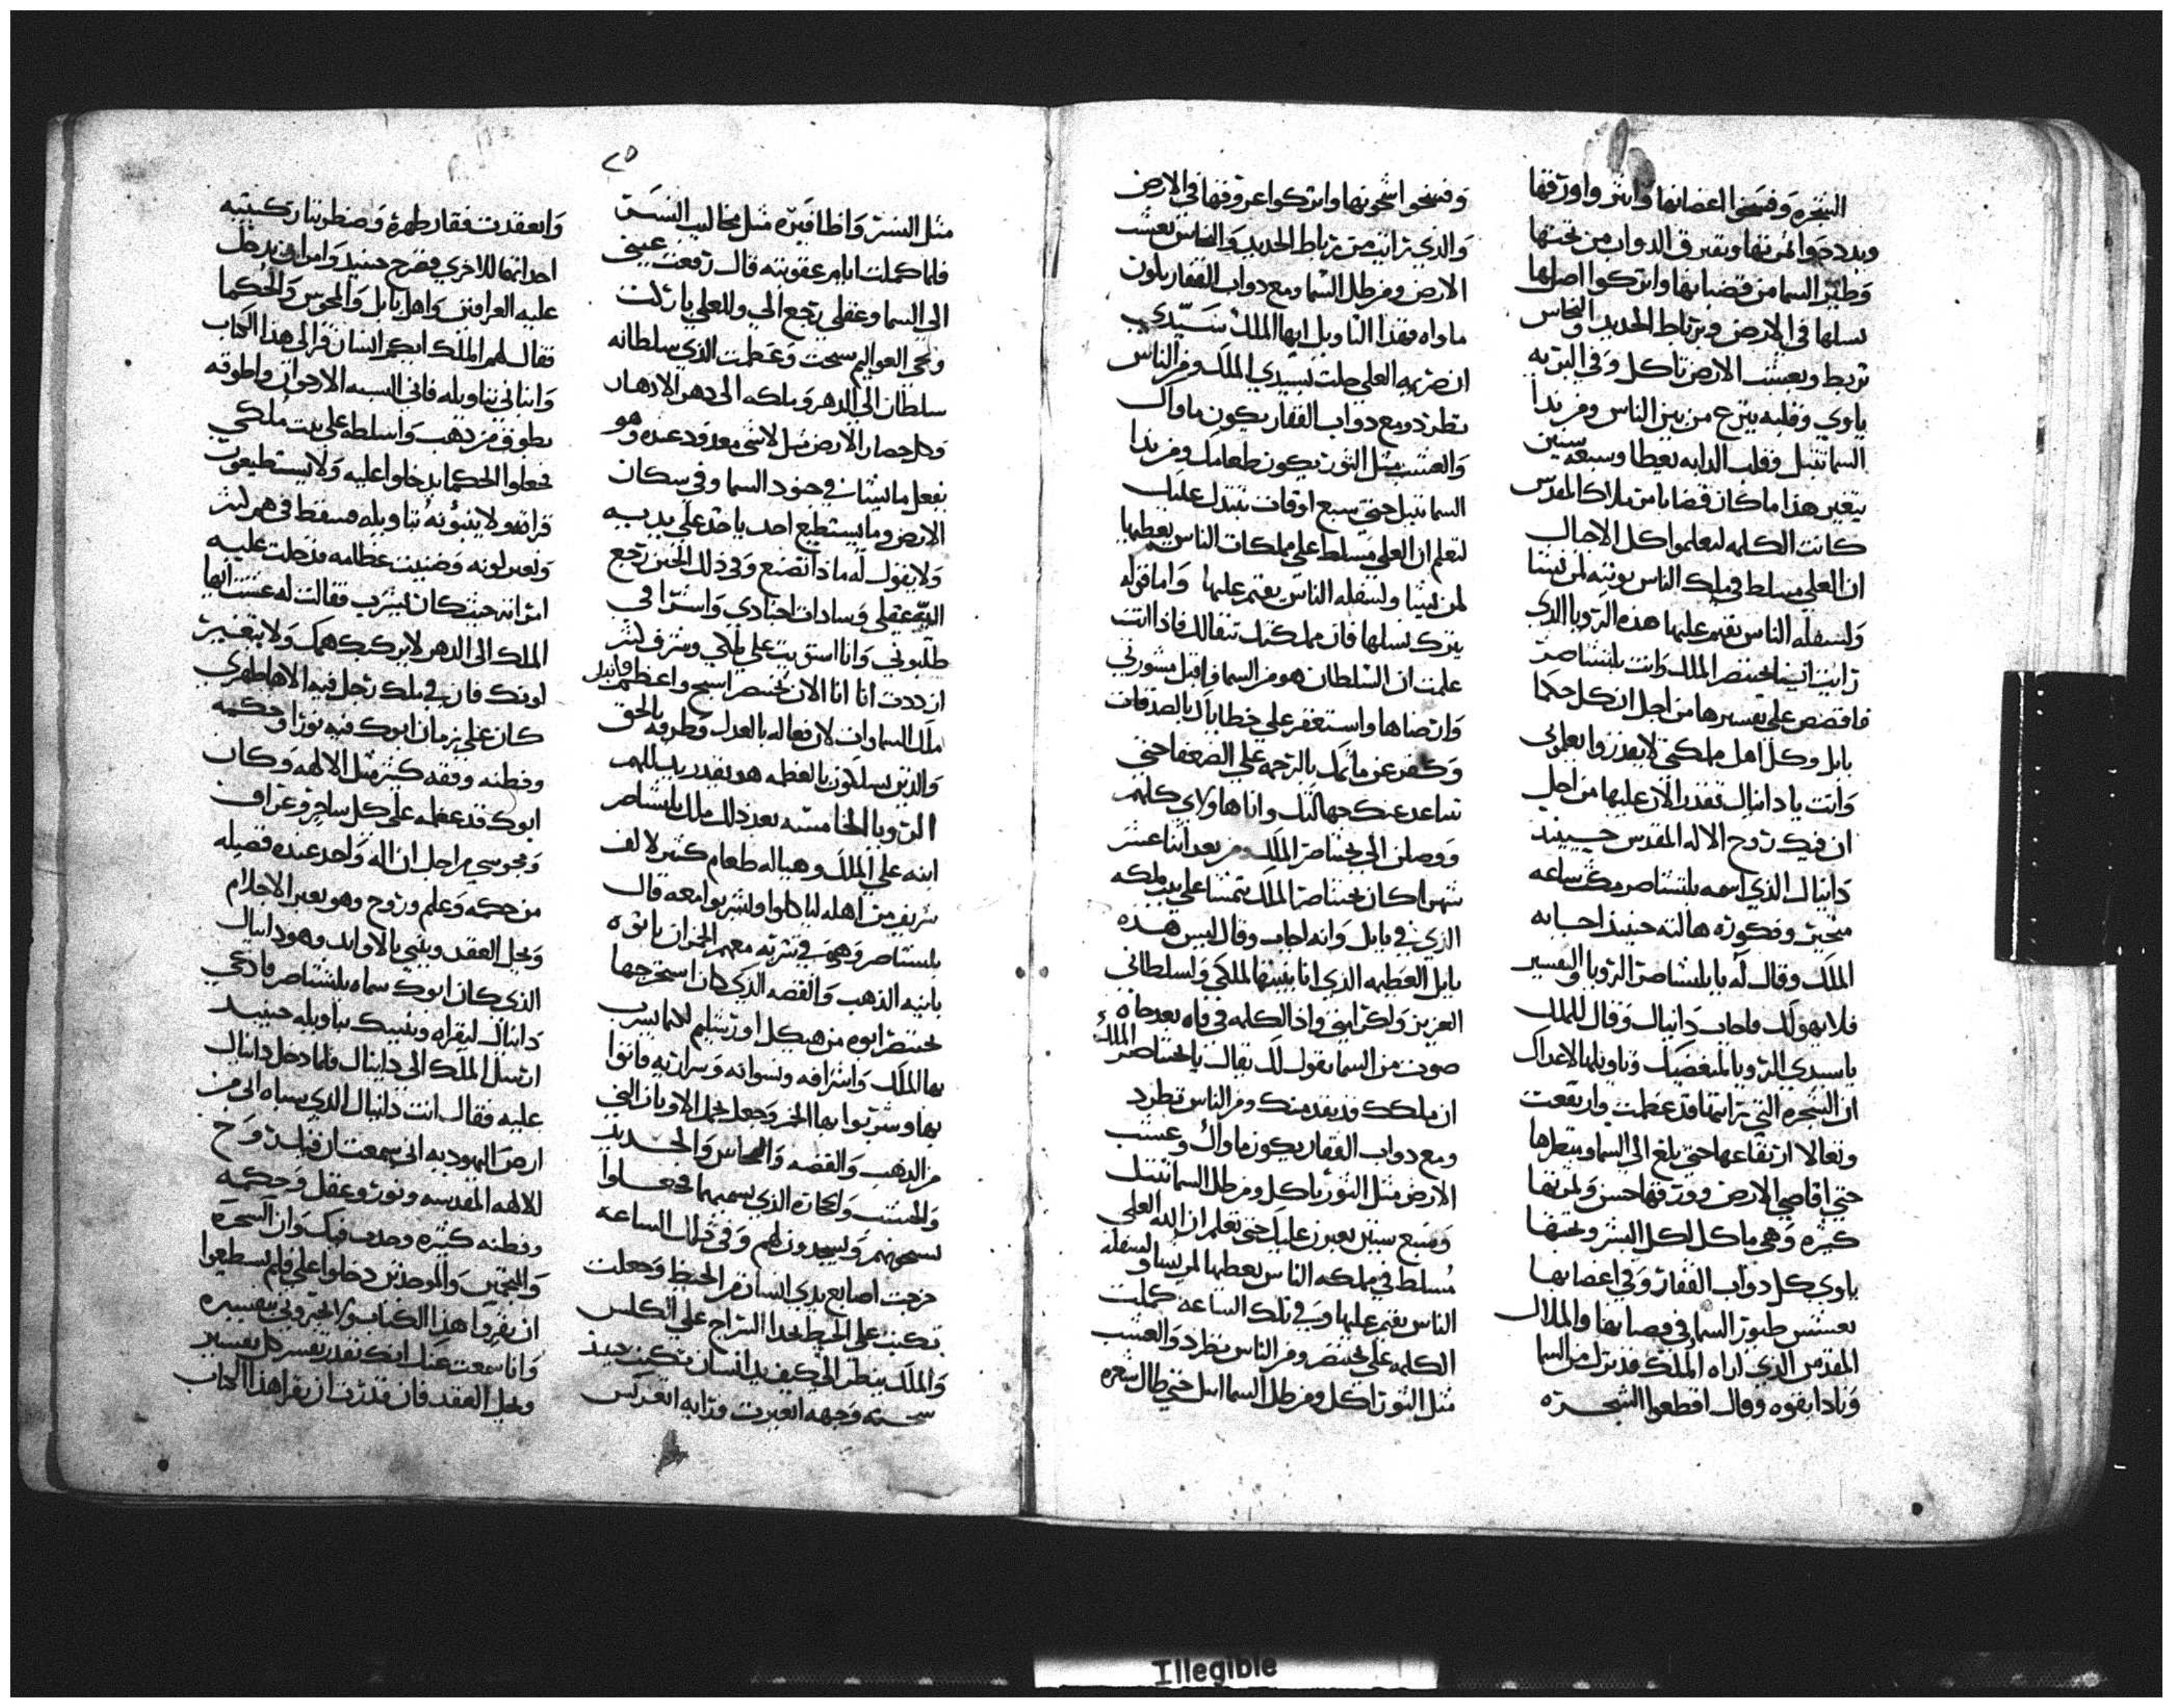 الشجره وفسخوا اغصانها وانثروا ورقها
وبددوا ثمرتها ويتفرق الدواب من تحتها
وطير السما من قضبانها واتركوا اصلها
نسلها في الارض وبرباط الحديد والنحاس
تربط وبعشب الارض تاكل وفي البريه
ياوي وقلبه ينزع من بين الناس ومن ندا
السما تتبل وقلب الدابه يعطا وسبعه سنين
يتغير هذا ما كان قضا يا من ملاك المقدس
كانت الكلمه ليعلموا كل الاجيال
ان العلي مسلط في ملك الناس يوتيه لمن يشا
ولسفله الناس يقيم عليها هذه الرويا الذي
رايت انا بختنصر الملك وانت بلتشاصر
فاقصص علي تفسيرها من اجل ان كل حكما
بابل وكل اهل مملكتي لا يقدروا يعلموني
وانت يا دانيال تقدر الان عليها من اجل
ان فيك روح الاله المقدس حينيذ
دانيال الذي اسمه بلتشاصر مكث ساعه
متحير وفكوره هالته حينيذ اجابه
الملك وقال له يا بلتشاصر الرويا والتفسير
فلا يهولك فاجاب دانيال وقال للملك
يا سيدي الرويا لمبغضيك وتاويلها لاعداك
ان الشجره التي رايتها قد عظمت وارتفعت
وتعالا ارتفاعها حتي بلغ الي السما ومنظرها
حتي اقاصي الارض وورقها حسن وثمرتها
كثيره وهي ماكل لكل البشر وتحتها
ياوي كل دواب القفار وفي اغصانها
تعشش طيور السما في قضبانها والملاك
المقدس الذي اراه الملك قد نزل من السما
ونادا بقوه وقال اقطعوا الشجره
وفسخوا اشجوتها واتركوا عروقها في الارض
والذي رايت من رباط الحديد والنحاس بعشب
الارض ومن طل السما ومع دواب القفار يكون
ماواه فهذا التاويل ايها الملك سيدي
ان ضربه العلي حلت بسيدي الملك ومن الناس
تطرد ومع دواب القفار يكون ماواك
والعشب مثل الثور يكون طعامك ومن ندا
السما تبتل حتي سبع اوقات تتبدل عليك
لتعلم ان العلي مسلط علي مملكات الناس يعطيها
لمن يشا ولسفله الناس يقيم عليها واما قوله
يترك نسلها فان مملكتك تبقا لك فاذا انت
علمت ان السلطان هو من السما فاقبل مشورتي
وارتضاها واستغفر علي خطاياك بالصدقات
وكفر عن ماثمك بالرحمه علي الضعفا حتي
تباعد عنك جهالتك وانا هاولاي كلهم
ووصلن الي بختناصر الملك ومن بعد اثنا عشر
شهرا كان بختناصر الملك يتمشا علي بيت ملكه
الذي في بابل وانه اجاب وقال اليس هذه
بابل العظيمه الذي انا بنيتها لملكي ولسلطاني
العزيز ولكرامتي واذا الكلمه في فاه بعد جاه
صوت من السما يقول لك يقال يا بختناصر الملك
ان ملكك قد نفد منك ومن الناس تطرد
ومع دواب القفار يكون ماواك وعشب
الارض مثل الثور تاكل ومن طل السما تبتل
وسبع سنين يعبرن عليك حتي تعلم ان الله العلي
مسلط في مملكه الناس يعطيها لمن يشا ولسفله
الناس يقيم عليها وفي تلك الساعه كملت
الكلمه علي بختنصر ومن الناس نطرد والعشب
مثل الثور اكل ومن طل السما ابتل حتي طال شعره
٢٥
مثل النسر واظافيره مثل مخاليب النسر
فلما كملت ايام عقوبته قال رفعت عيني
الي السما وعقلي رجع الي وللعلي باركت
ومحي العوالم سبحت وعظمت الذي سلطانه
سلطان الي الدهر وملكه الي دهر الادهار
وكل حضار الارض مثل لا شي معدود عنده وهو
يفعل ما يشا في جنود السما وفي سكان
الارض وما يستطيع احد ياخذ علي يديه
ولا يقول له ماذا تصنع وفي ذلك الحين رجع
الي عقلي وسادات اجنادي واشرافي
طلبوني وانا استويت علي ملكي وشرف كثير
ازددت انا انا الان بختنصر اسبح واعظم وابجل
ملك السماوات لان فعاله بالعدل وطرقه بالحق
والذين يسلكون بالعظمه هو يقدر يذللهم
الرويا الخامسه بعد ذلك ملك بلشاصر
ابنه علي الملك وهياله طعام كثير لالف
شريف من اهله لياكلوا وليشربوا معه قال
بلتشاصر وهي في شربه معهم الخمر ان ياتوه
بانيه الذهب والفضه الذي كان استخرجها
بختنصر ابوه من هيكل اورشليم لكيما يشرب
بها الملك واشرافه ونسوانه وسراريه فاتوا
بها وشربوا بها الخمر وجعل يحمل الاوثان التي
من الذهب والفضه والنحاس والحديد
والخشب والحجاره الذي يسميهما فجعلوا
يسبحونهم ويسجدون لهم وفي تلك الساعه
خرجت اصابع يدي انسان من الحيط وجعلت
تكتب علي الحيط بحدا السراج علي الكلس
والملك ينظر الي كيف يد انسان تكتب حينيذ
سحنه وجهه اتغيرت وركبه اتعركس
وانعقدت فقار ظهره وضطربتا ركبتيه
احداهما للاخري فصرخ حينيذ وامر ان يدخل
عليه العرافين واهل بابل والمجوس والحكما
فقال لهم الملك ايكم انسان قرا لي هذا الكتاب
وانباني بتاويله فاني البسه الارجوان واطوقه
بطوق من ذهب واسلطه علي بيت ملكي
فجعلوا الحكما يدخلوا عليه ولا يستطيعون
قراته ولا ينبؤنه بتاويله فسقط في هم كثير
وتغير لونه وضنيت عظامه فدخلت عليه
امراته حيث كان يشرب فقالت له عشت ايها
الملك الي الدهر لا يركبك همك ولا يتغير
لونك فان في ملكك رجل فيه الالها طهري
كان علي زمان ابوك فيه نورا وحكمه
وفطنه وفقه كثير مثل الالهه وكان
ابوك قد عظمه علي كل ساحر وعراف
ومجوسي من اجل ان اله واحد عنده فضيله
من حكمه وعلم وروح وهو يعبر الاحلام
ويحل العقد وينبي بالاوابد وهو دانيال
الذي كان ابوك سماه بلتشاصر فادعي
دانيال ليقراه وينبيك بتاويله حينيد
ارسل الملك الي دانيال فلما دخل دانيال
عليه فقال انت دانيال الذي سباه ابي من
ارض اليهوديه اني سمعت ان فيك روح
الالهه المقدسه ونور وعقل وحكمه
وفطنه كثيره وجدت فيك وان السحره
والمنجمين والموحدين دخلوا علي فلم يستطيعوا
ان يقروا هذا الكتاب ولا يخبروني بتفسيره
وانا سمعت عنك انك تقدر تفسر كل تفسير
وتحل العقد فان قدرت ان تقرا هذا الكتاب
Illegible